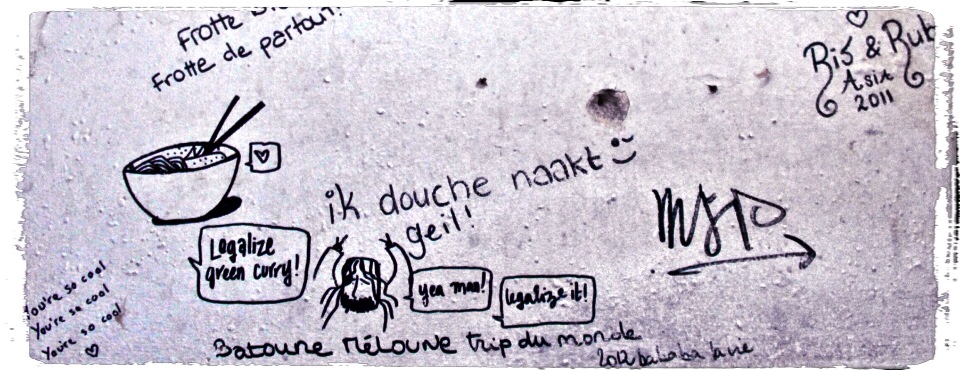 Frotte
frotte de partout!
Bis & Rub
Asia
2011
ik douche naakt
geil!
Legalize
green curry!
yea man!
legalize it!
You're so cool
You're so cool
You're so cool
Batoune Méloune trip du monde
2012 la vie